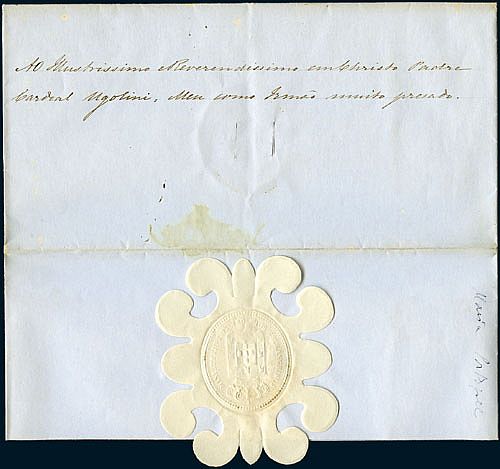 Ao Illustrissimo e Reverendissimo em Christo Padre
Cardeal Ugolini, Meu como Irmão muito prezado.
Maria